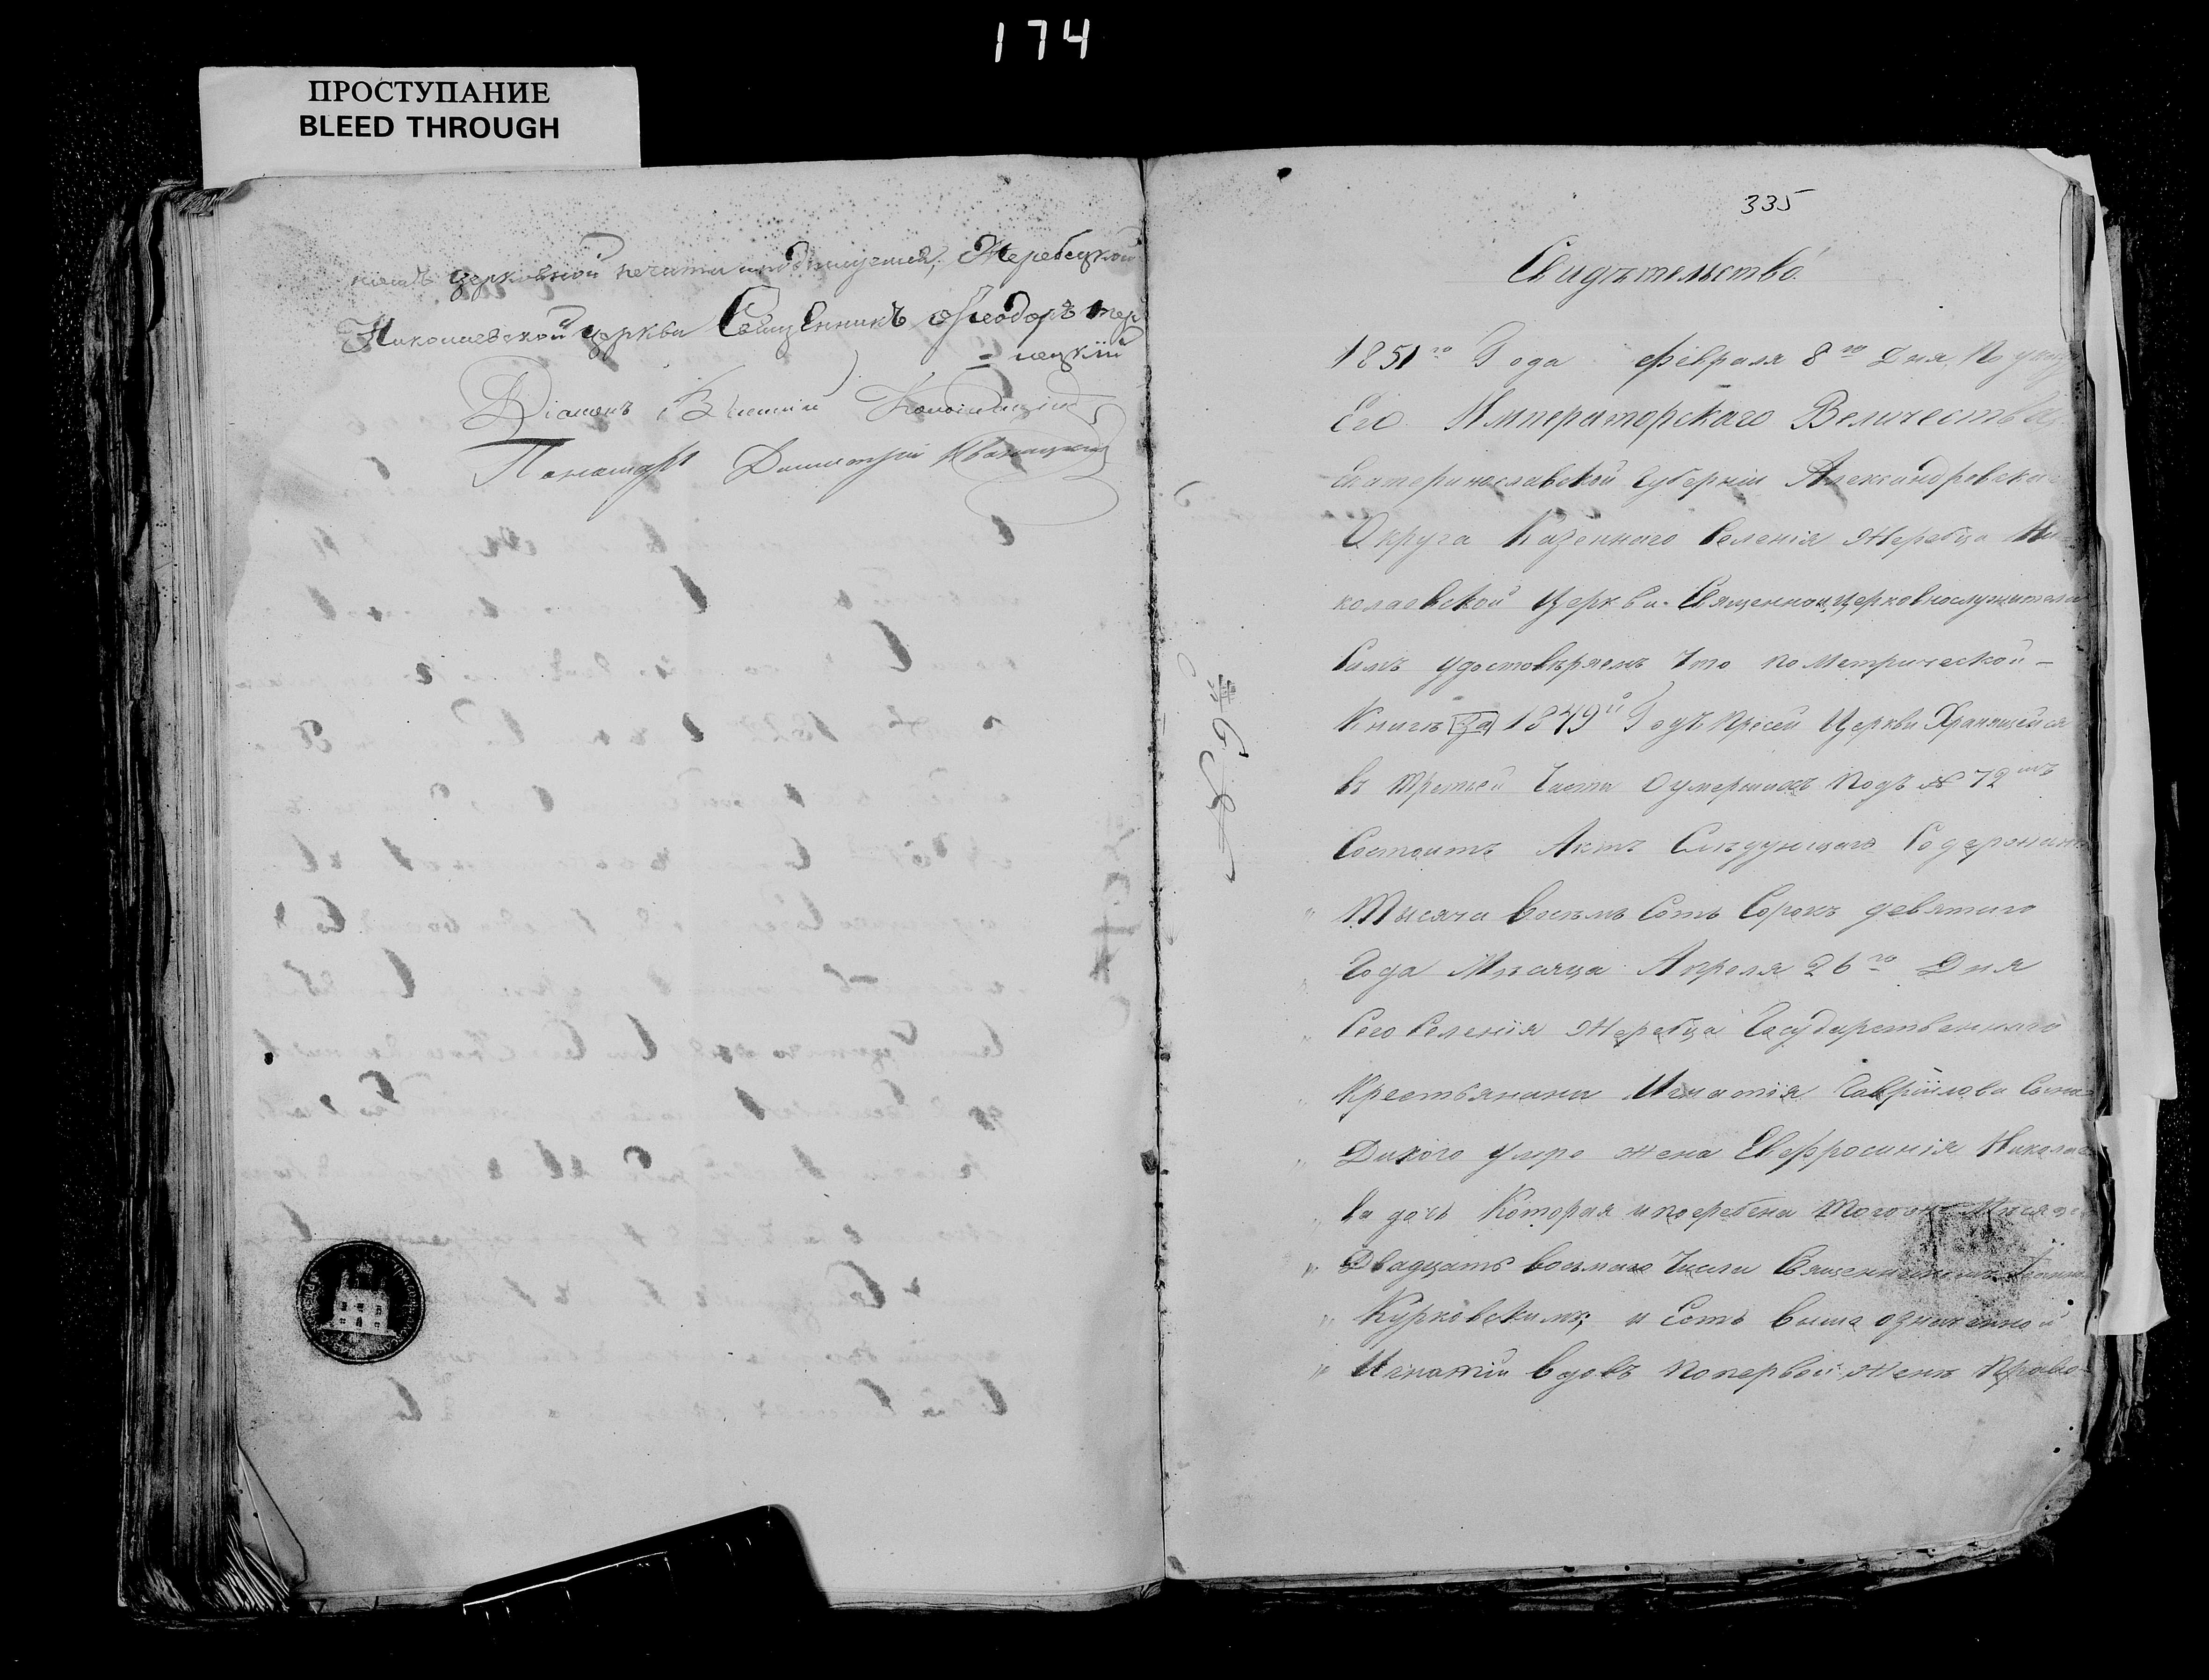 174
ПРОСТУПАНИЕ
BLEED THROUGH
церковной печати Жеребецкой
Николаевской церкви Священникъ Ѳеодоръ
=нецкій
Діаконъ
Пономарь Димитрій
335
Свидѣтельство.
1851го Года февраля 8го Дня, По указу
Его Императорскаго Величества,
Екатеринославской Губерніи Александровскаго
Округа Казеннаго Селенія Жеребца Ни
колаевской Церкви. Священноицерковнослужители
Симъ удостовѣряемъ Что по Метрической-
Книгѣ За 1849й Годъ Присей Церкви Хранящейся
въ Третьей Части Оумершихъ Подъ № 72мъ
Состоитъ Актъ Слѣдующаго Содержанія
" Тысяча Восемь Сотъ Сорокъ девятаго
" Года Мѣсяца Апреля 26го Дня
" Сего Селенія Жеребца Государственнаго
" Крестьянина Игнатія Гавріилова Сына
" Дикого умре жена Евфросинія Николае
" ва дочь Которая и погребена Тогожъ Мѣсяца
" Двадцать восьмаго Числа Священникомъ
" Курковскимъ, и Сотъ выше озниченной
" Игнатій вдовъ Попервой Женѣ